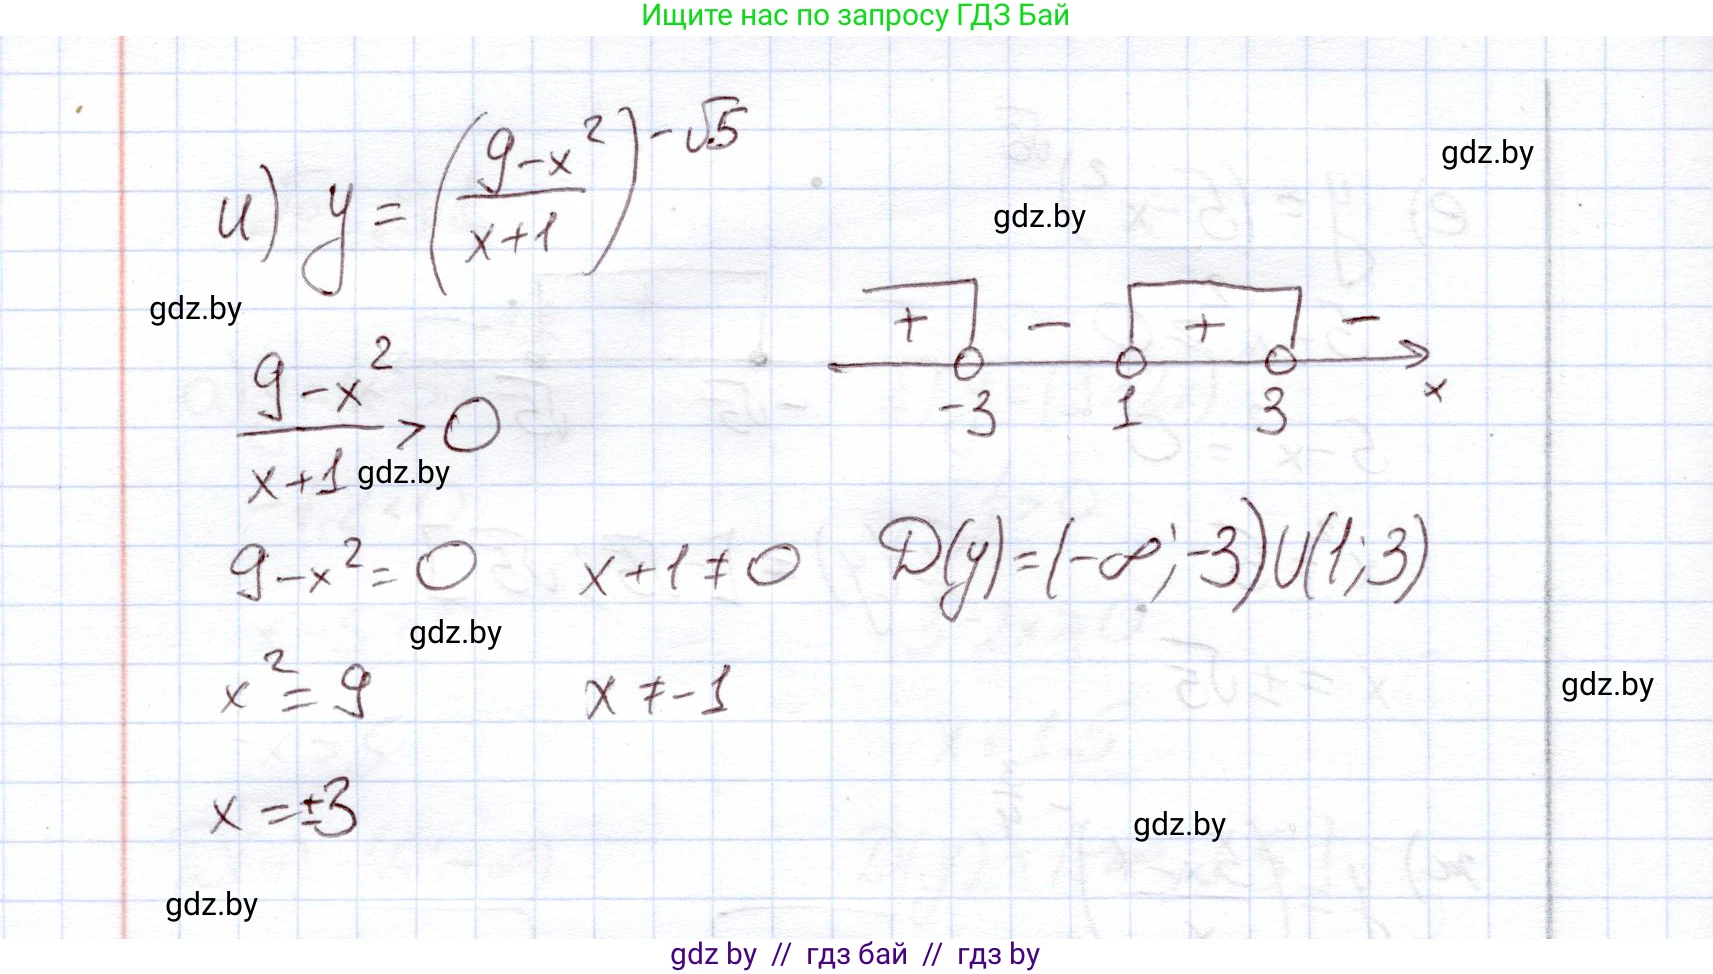 Ищите нас по запросу ГДЗ Бай
и) y = ((9-x²)/(x+1))^(-√5)
gdz.by
gdz.by
gdz.by
(9-x²)/(x+1) > 0
gdz.by
+ - + -
-3 1 3 x
9-x²=0 x+1≠0 D(y)=(-∞;-3)U(1;3)
gdz.by
x²=9 x≠-1
gdz.by
x=±3
gdz.by
gdz.by
gdz by // гдз бай // гдз by